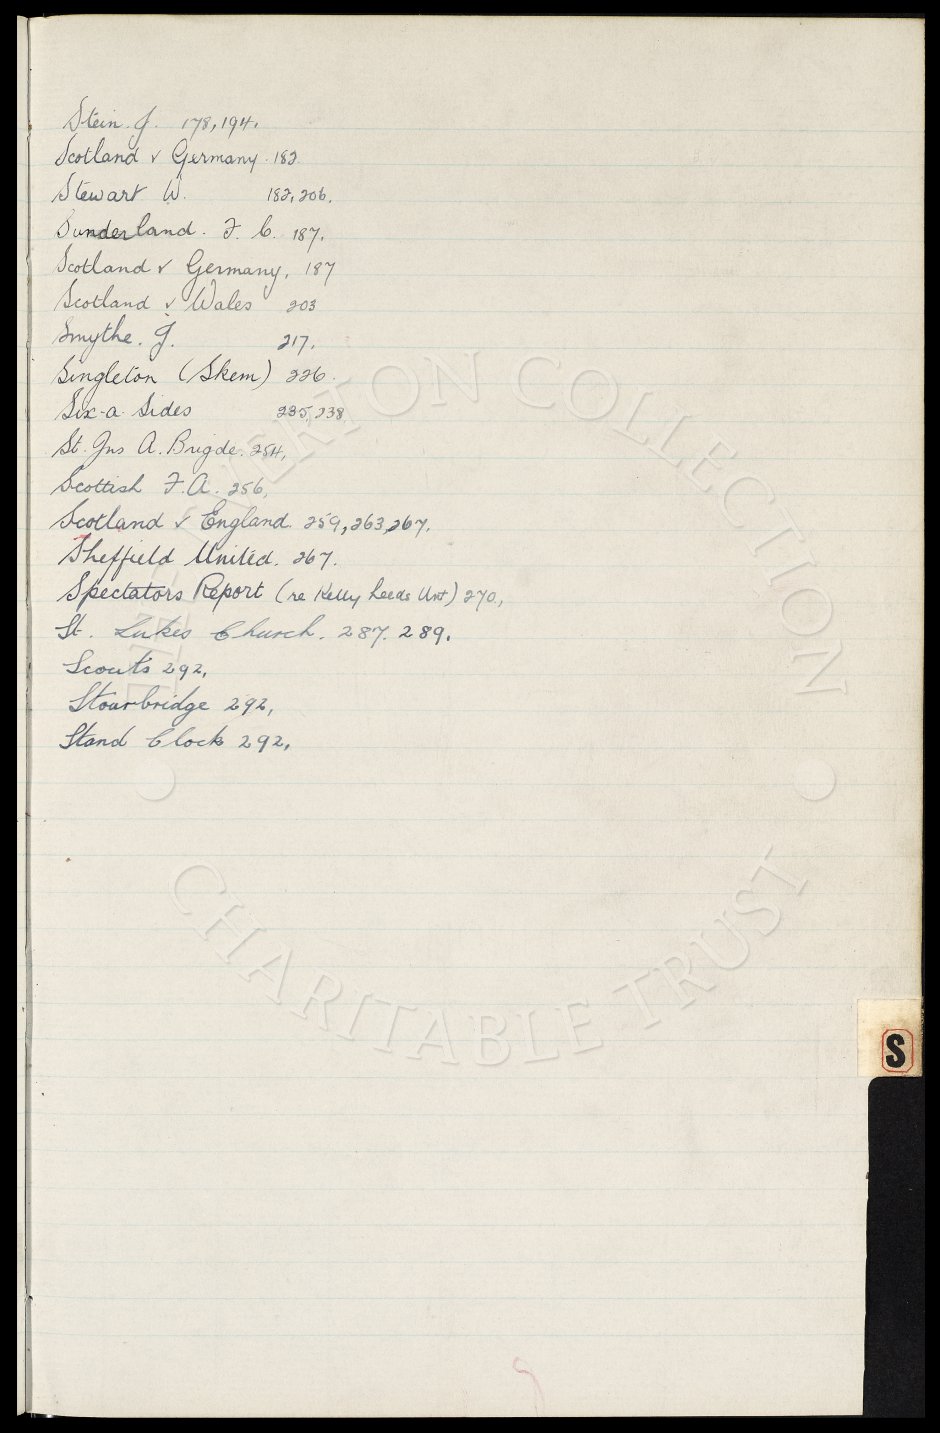 Stein. J. 178, 194.
Scotland v Germany. 182
Stewart W. 182, 206.
Sunderland. F. C. 187.
Scotland v Germany. 187
Scotland v Wales 203
Smythe. J. 217.
Singleton (Skem) 226.
Six-a-Sides 235, 238
St. Jns A. Brigde. 254,
Scottish F.A. 256,
Scotland v England. 259, 263, 267.
Sheffield United. 267.
Spectators Report (re Kelly Leeds Unt) 270,
St. Lukes Church. 287. 289.
Scouts 292,
Stourbridge 292,
Stand Clock 292.
THE EVERTON COLLECTION
CHARITABLE TRUST
S